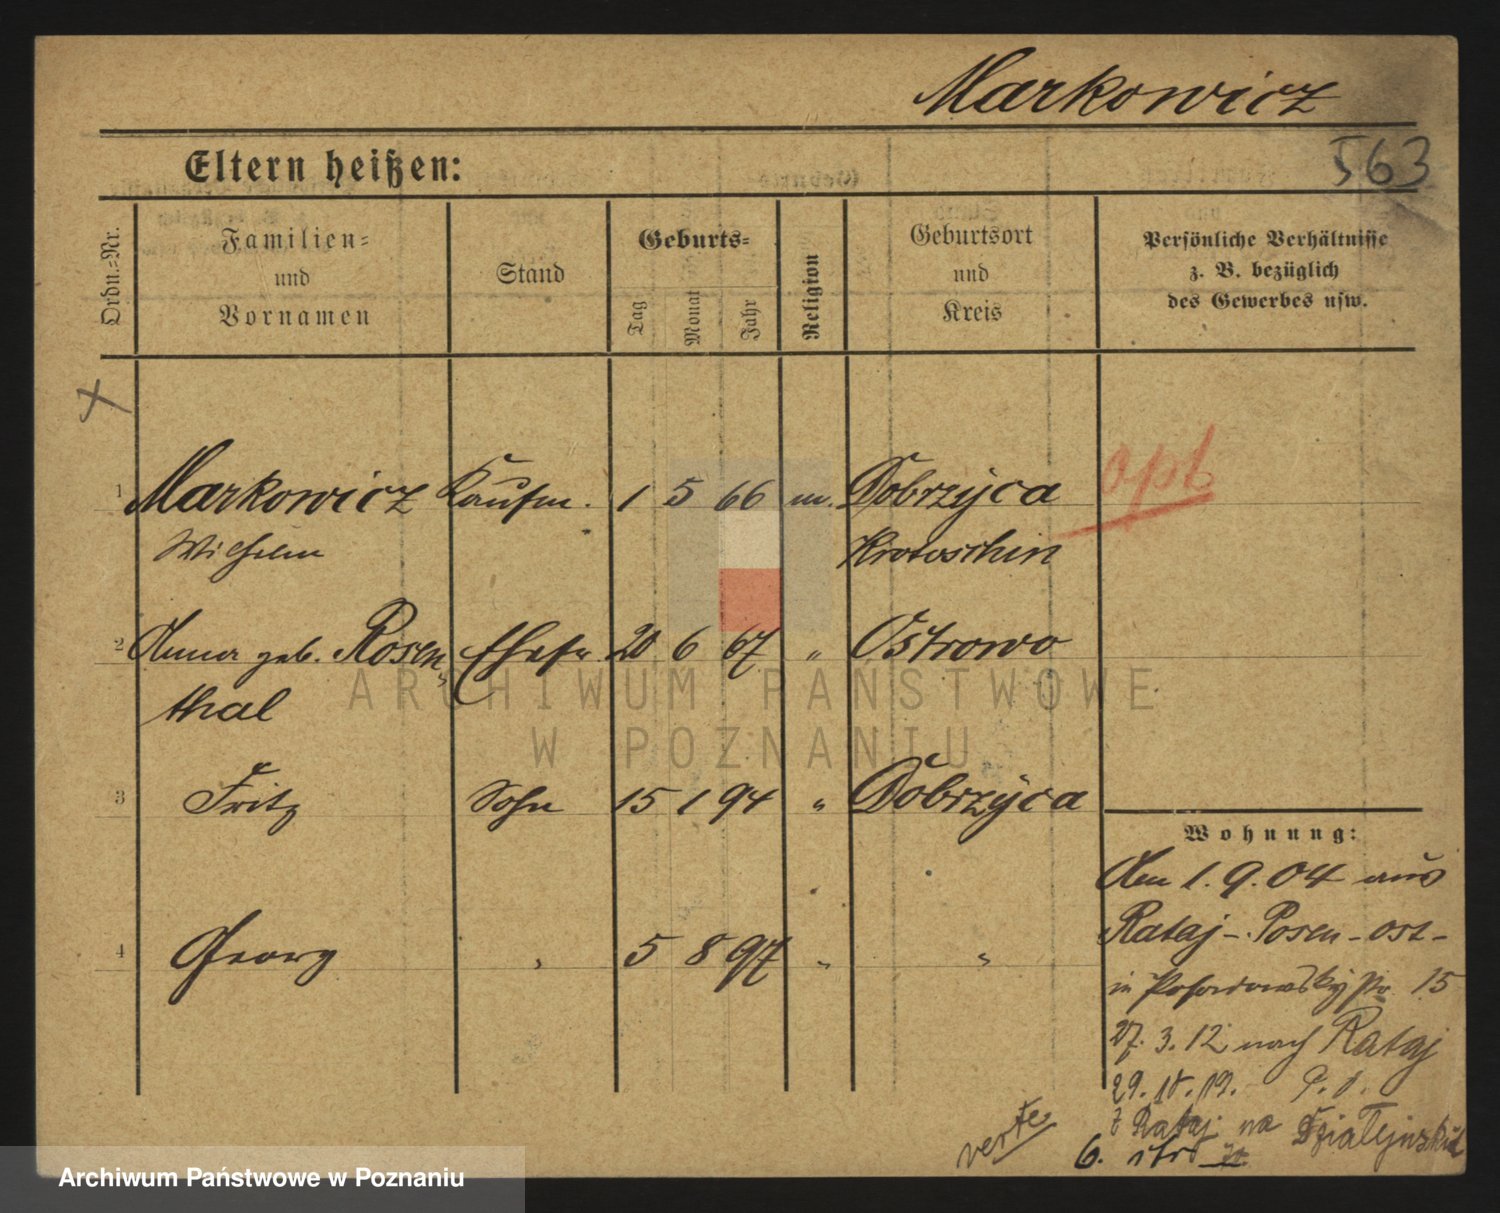 Markowicz
563
Eltern heißen:
Ordn.-Nr.
Familien-
und
Vornamen
Stand
Geburts-
Tag
Monat
Jahr
Religion
Geburtsort
und
Kreis
Persönliche Verhältnisse
z. B. bezüglich
des Gewerbes usw.
x
1 Markowicz Kaufm. 1 5 66 m. Dobrzyca opt
Wilhelm Krotoschin
2 Anna geb. Rosen- Ehefr. 20 6 67 " Ostrowo
thal
3 Fritz Sohn 15 1 94 " Dobrzyca
Wohnung:
Am 1.9.04 aus
Rataj-Posen-ost-
4 Georg " 5 8 97 " "
in 15
27.3.12 nach Rataj
29.10.19.
z Rataj na
verte
6.
ARCHIWUM PAŃSTWOWE
W POZNANIU
Archiwum Państwowe w Poznaniu